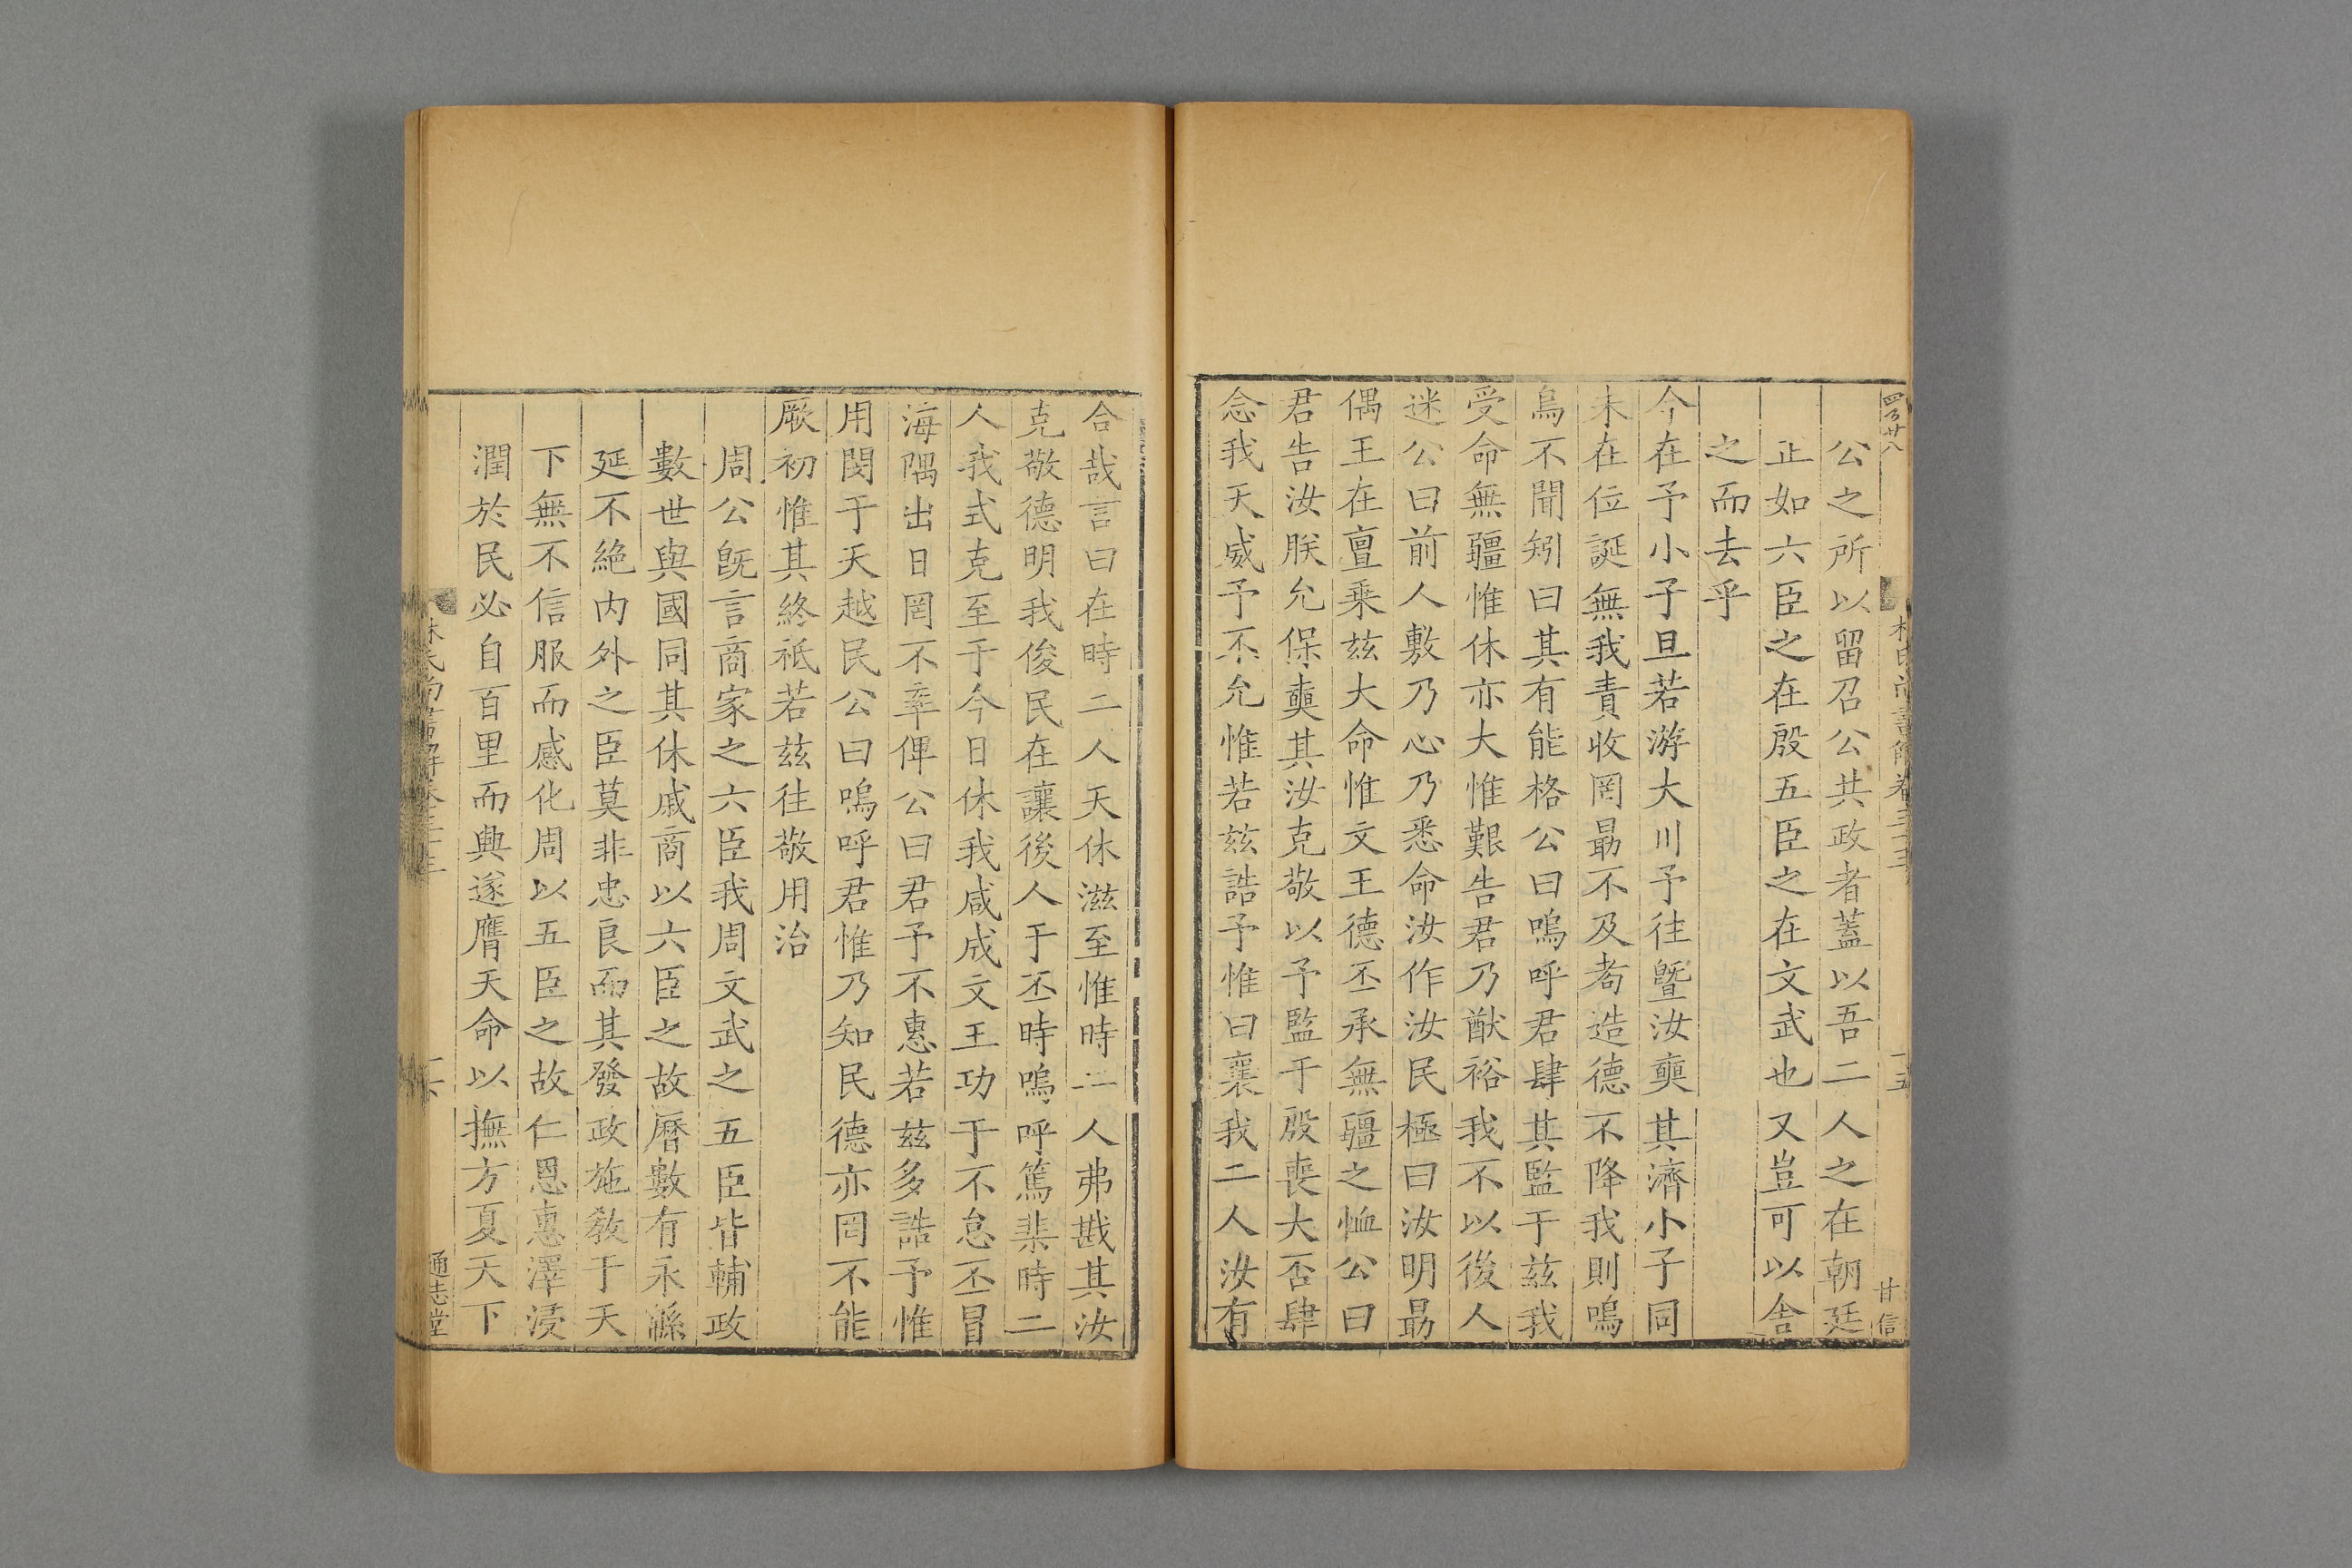 公之所以留召公共政者蓋以吾二人之在朝廷
正如六臣之在殷五臣之在文武也又豈可以舍
之而去乎
今在予小子旦若游大川予往曁汝奭其濟小子同
未在位誕無我責收罔勗不及耇造德不降我則鳴
鳥不聞矧曰其有能格公曰嗚呼君肆其監于兹我
受命無疆惟休亦大惟艱告君乃猷裕我不以後人
迷公曰前人敷乃心乃悉命汝作汝民極曰汝明勗
偶王在亶乘兹大命惟文王德丕承無疆之恤公曰
君告汝朕允保奭其汝克敬以予監于殷喪大否肆
念我天威予不允惟若兹誥予惟曰襄我二人汝有
合哉言曰在時二人天休滋至惟時二人弗戡其汝
克敬德明我俊民在讓後人于丕時嗚呼篤棐時二
人我式克至于今日休我咸成文王功于不怠丕冒
海隅出日罔不率俾公曰君予不惠若兹多誥予惟
用閔于天越民公曰嗚呼君惟乃知民德亦罔不能
厥初惟其終祗若兹往敬用治
周公旣言商家之六臣我周文武之五臣皆輔政
數世與國同其休戚商以六臣之故曆數有永緜
延不絶内外之臣莫非忠良而其發政施敎于天
下無不信服而感化周以五臣之故仁恩惠澤浸
潤於民必自百里而興遂膺天命以撫方夏天下
通志堂